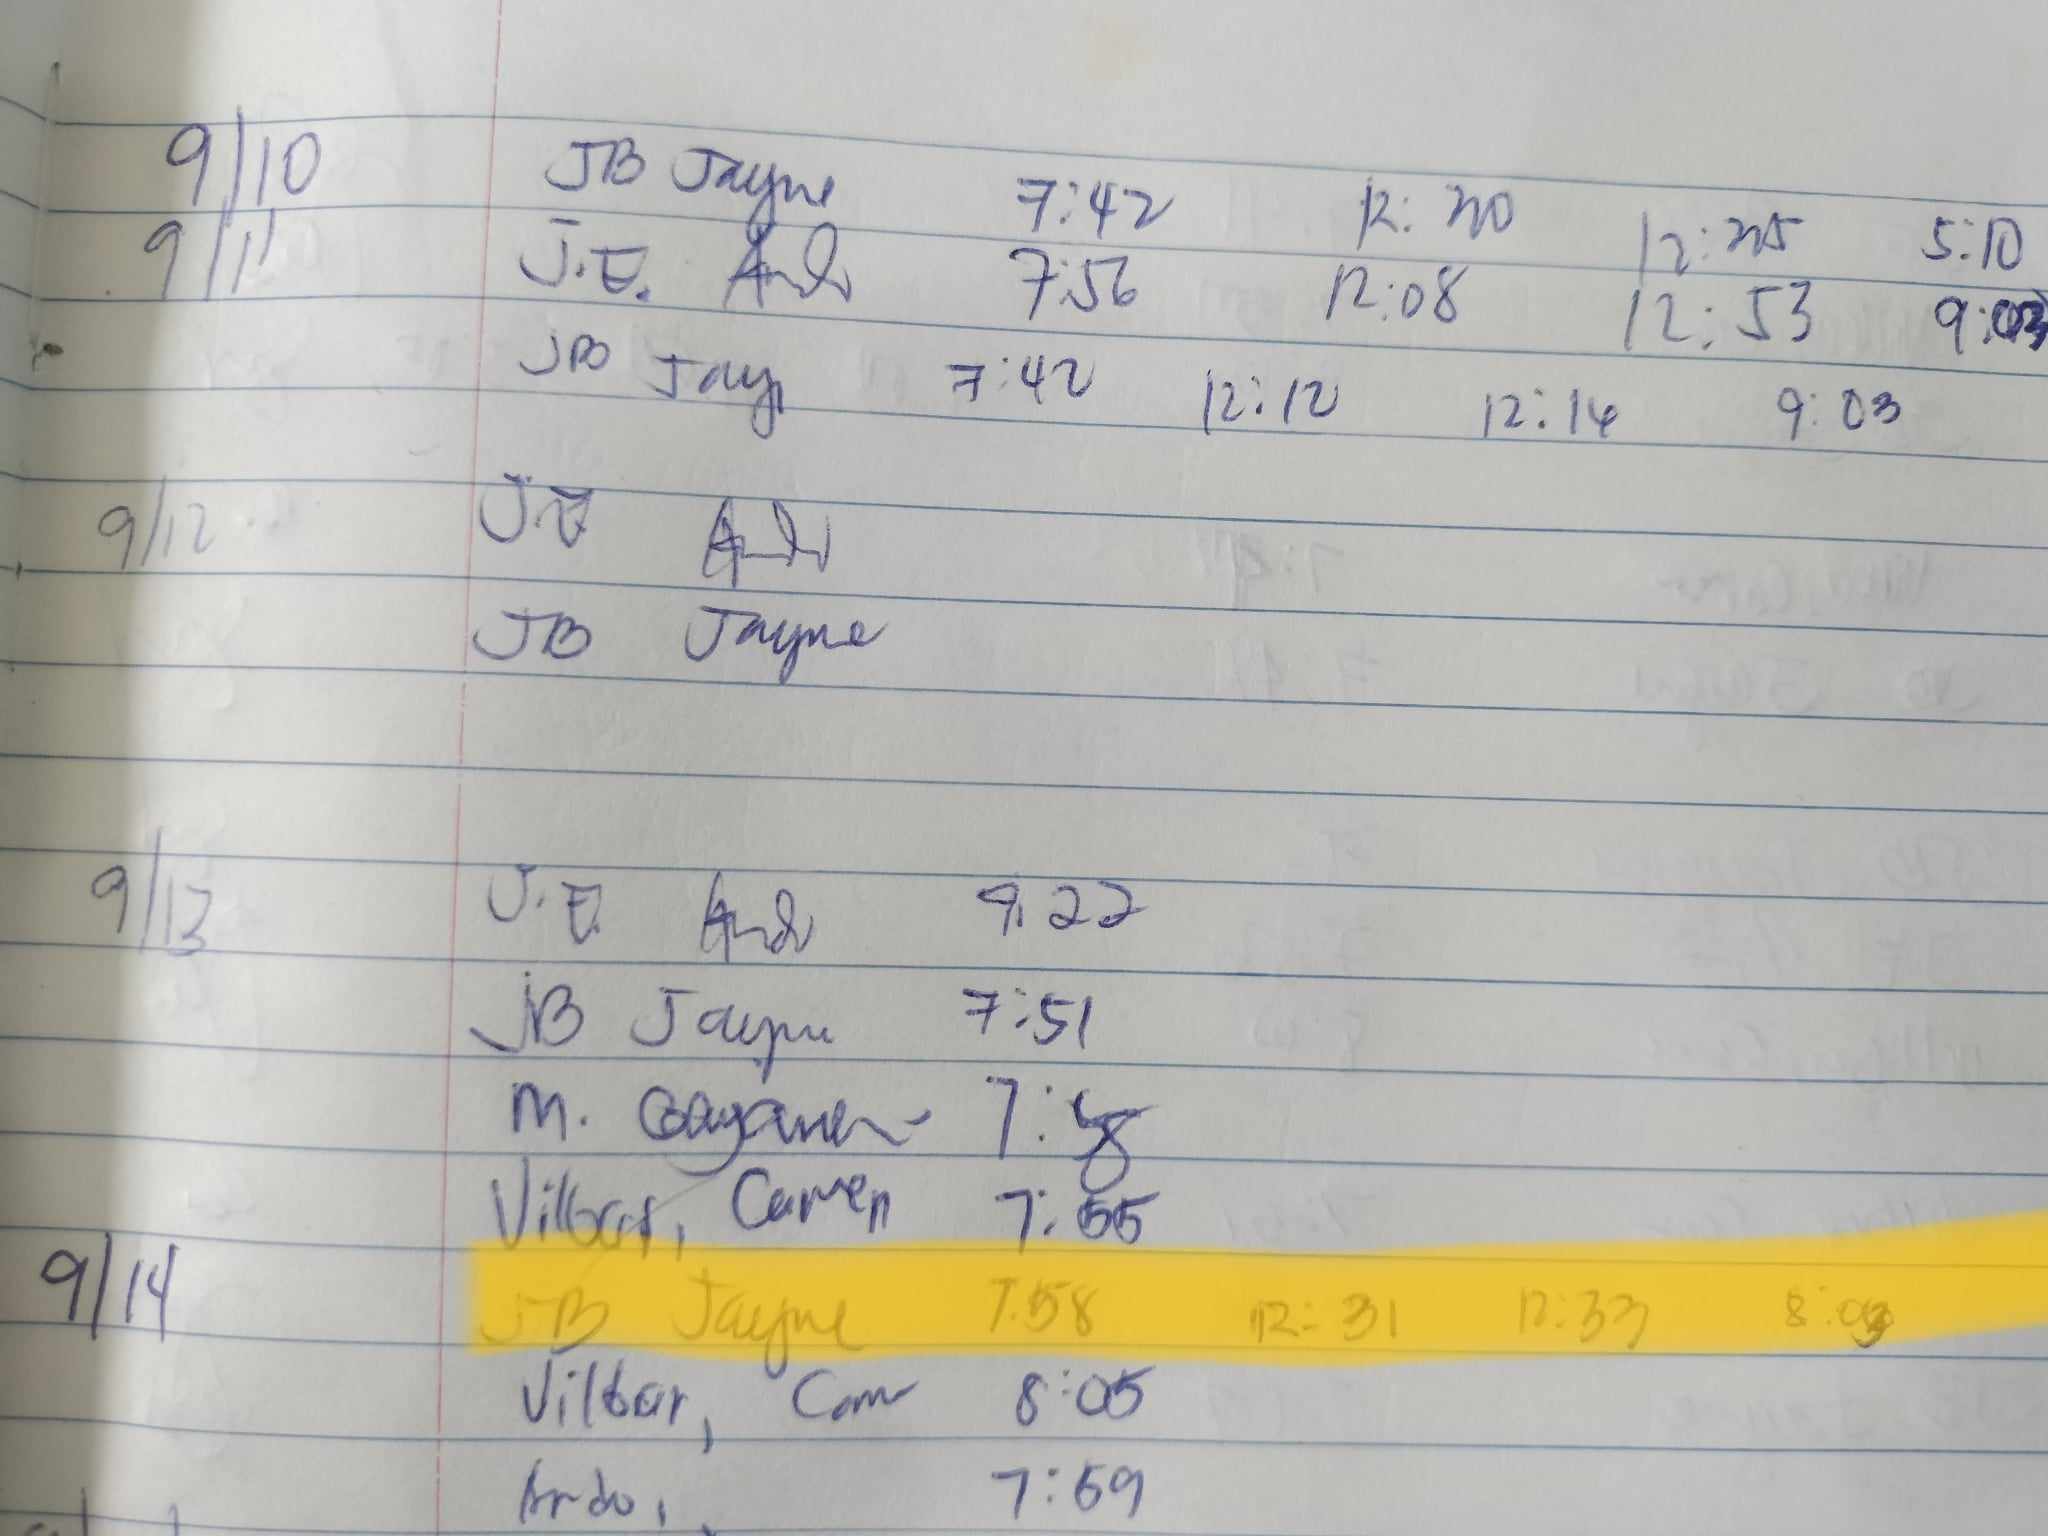 9/10 JB Jayne 7:42 12:20 12:25 5:10
9/11 J.E. 7:56 12:08 12:53 9:03
JB Jay 7:42 12:12 12:14 9:03
9/12 J.E
JB Jayne
9/13 J.E. 9:22
JB Jayne 7:51
M. 7:58
Vilbar, Carmen 7:55
9/14 JB Jayne 7:58 12:31 12:33 8:03
Vilbar, Carm 8:05
Ando, 7:59